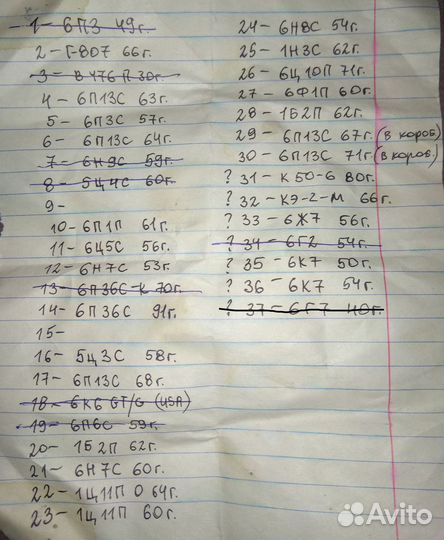 1 - 6П3 49г.
2 - Г-807 66г.
3 - В 476 П 30г.
4 - 6П13С 63г.
5 - 6П3С 57г.
6 - 6П13С 64г.
7 - 6Н9С 59г.
8 - 5Ц4С 60г.
9 -
10 - 6П1П 61г.
11 - 6Ц5С 56г.
12 - 6Н7С 53г.
13 - 6П36С-К 70г.
14 - 6П36С 91г.
15 -
16 - 5Ц3С 58г.
17 - 6П13С 68г.
18 - 6K6 GT/G (USA)
19 - 6П6С 59г.
20 - 1Б2П 62г.
21 - 6Н7С 60г.
22 - 1Ц11П О 64г.
23 - 1Ц11П 60г.
24 - 6Н8С 54г.
25 - 1Н3С 62г.
26 - 6Ц10П 71г.
27 - 6Ф1П 60г.
28 - 1Б2П 62г.
29 - 6П13С 67г. (в короб)
30 - 6П13С 71г. (в короб)
? 31 - К50-6 80г.
? 32 - КЭ-2-М 66г.
? 33 - 6Ж7 56г.
? 34 - 6Г2 54г.
? 35 - 6К7 50г.
? 36 - 6К7 54г.
? 37 - 6Г7 40г.
Avito